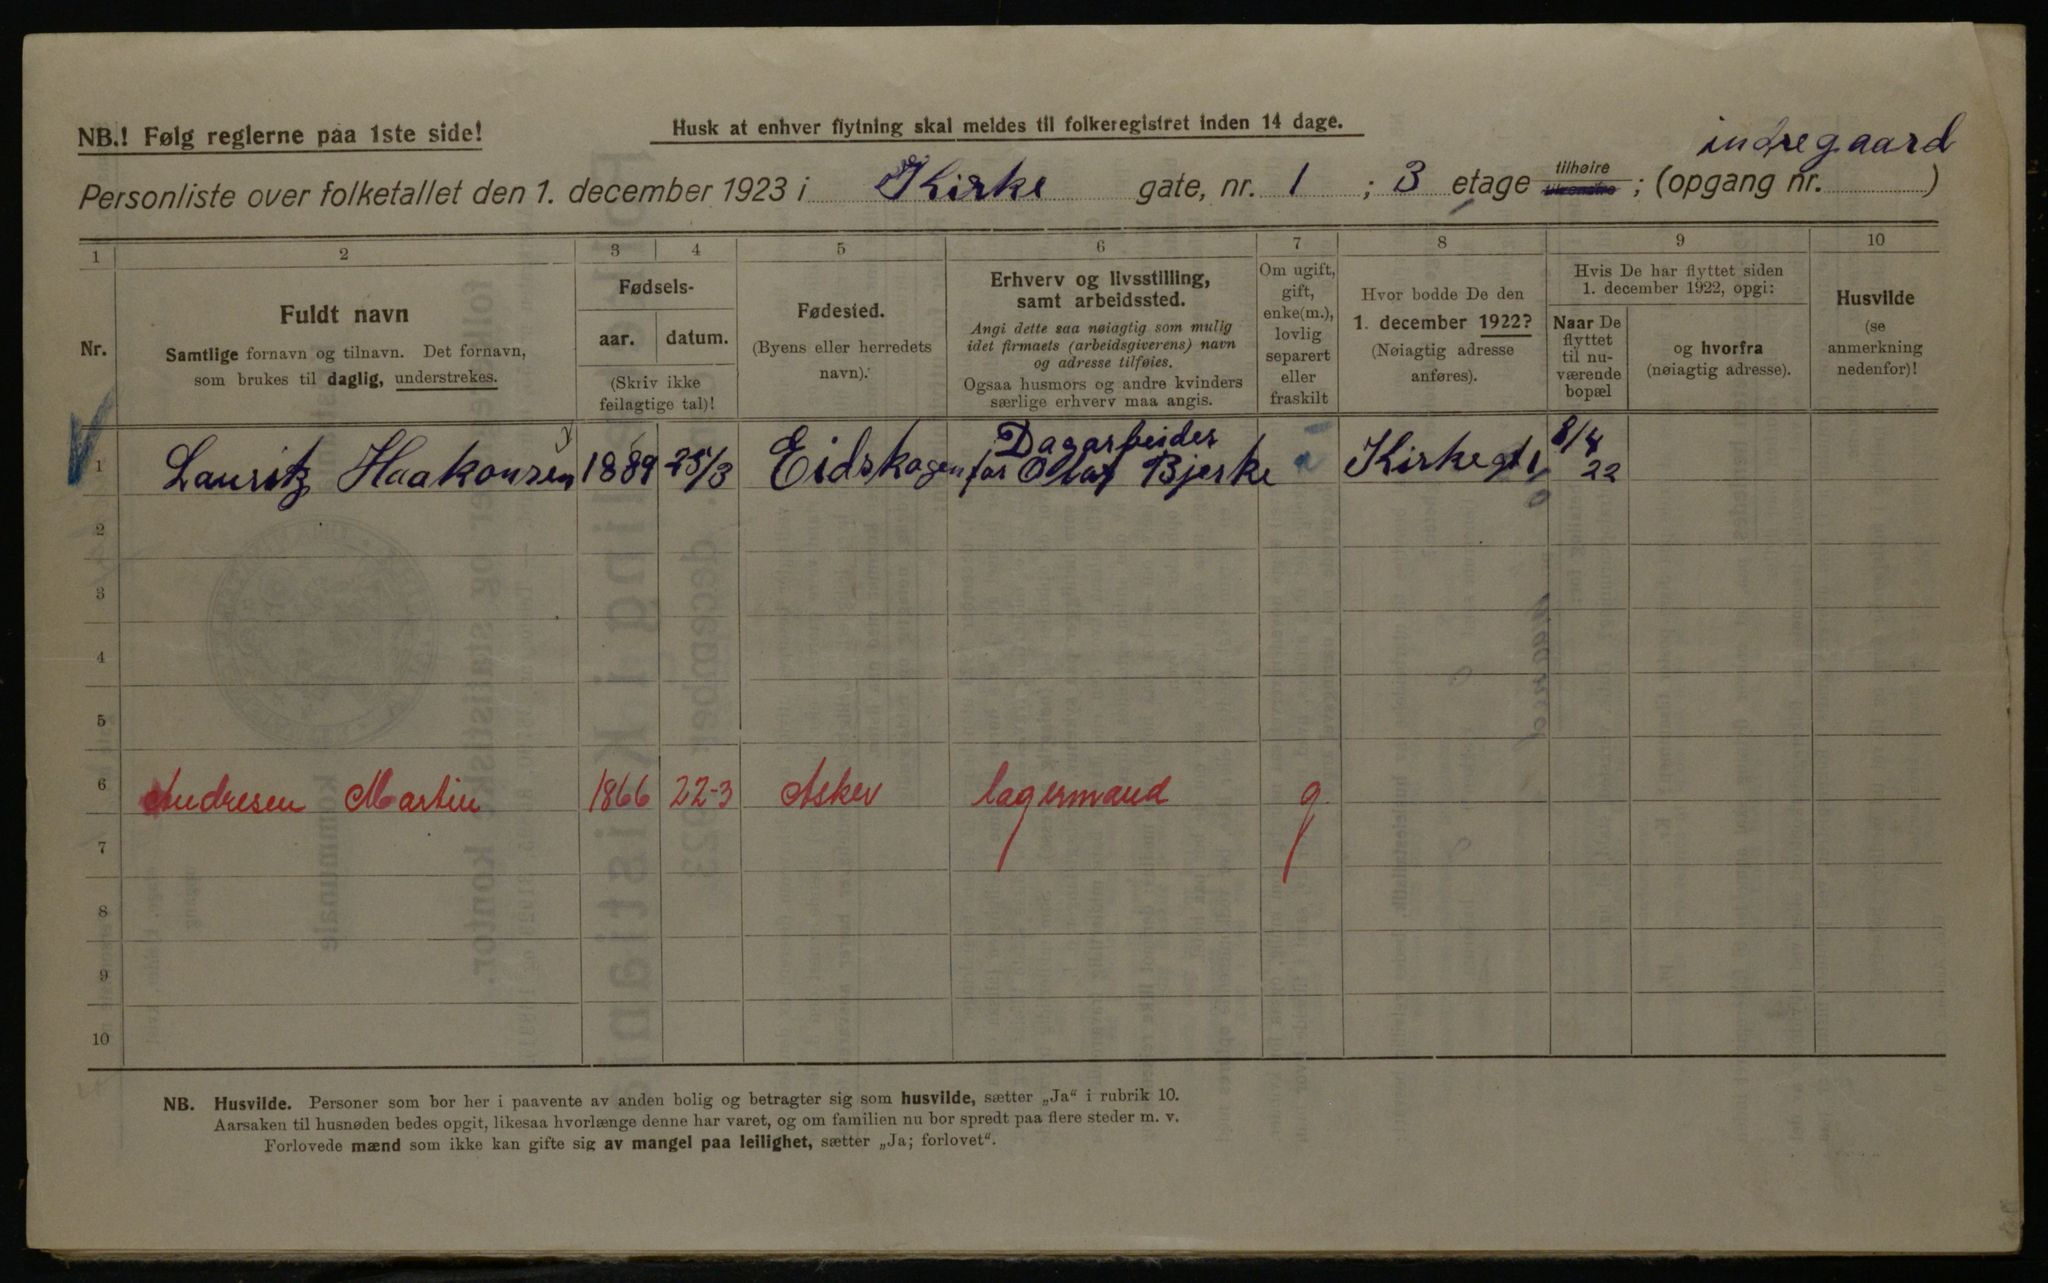 NB.! Følg reglerne paa 1ste side!
Husk at enhver flytning skal meldes til folkeregistret inden 14 dage.
indregaard
Personliste over folketallet den 1. december 1923 i Kirke gate, nr. 1 ; 3 etage tilhøire tilvenstre ; (opgang nr. )
1 2 3 4 5 6 7 8 9 10
Nr.
Fuldt navn
Samtlige fornavn og tilnavn. Det fornavn,
som brukes til daglig, understrekes.
Fødsels-
aar. datum.
(Skriv ikke
feilagtige tal)!
Fødested.
(Byens eller herredets
navn).
Erhverv og livsstilling,
samt arbeidssted.
Angi dette saa nøiagtig som mulig
idet firmaets (arbeidsgiverens) navn
og adresse tilføies.
Ogsaa husmors og andre kvinders
særlige erhverv maa angis.
Om ugift,
gift,
enke(m.),
lovlig
separert
eller
fraskilt
Hvor bodde De den
1. december 1922?
(Nøiagtig adresse
anføres).
Hvis De har flyttet siden
1. december 1922, opgi:
Naar De
flyttet
til nu-
værende
bopæl
og hvorfra
(nøiagtig adresse).
Husvilde
(se
anmerkning
nedenfor)!
1 Lauritz Haakonsen 1889 25/3 Eidskogen Dagarbeider
for Olaf Bjerke Kirkegt 1 8/4
22
2
3
4
5
6 Andresen Martin 1866 22-3 Asker lagermand g
7
8
9
10
NB. Husvilde. Personer som bor her i paavente av anden bolig og betragter sig som husvilde, sætter „Ja“ i rubrik 10.
Aarsaken til husnøden bedes opgit, likesaa hvorlænge denne har varet, og om familien nu bor spredt paa flere steder m. v.
Forlovede mænd som ikke kan gifte sig av mangel paa leilighet, sætter „Ja; forlovet“.